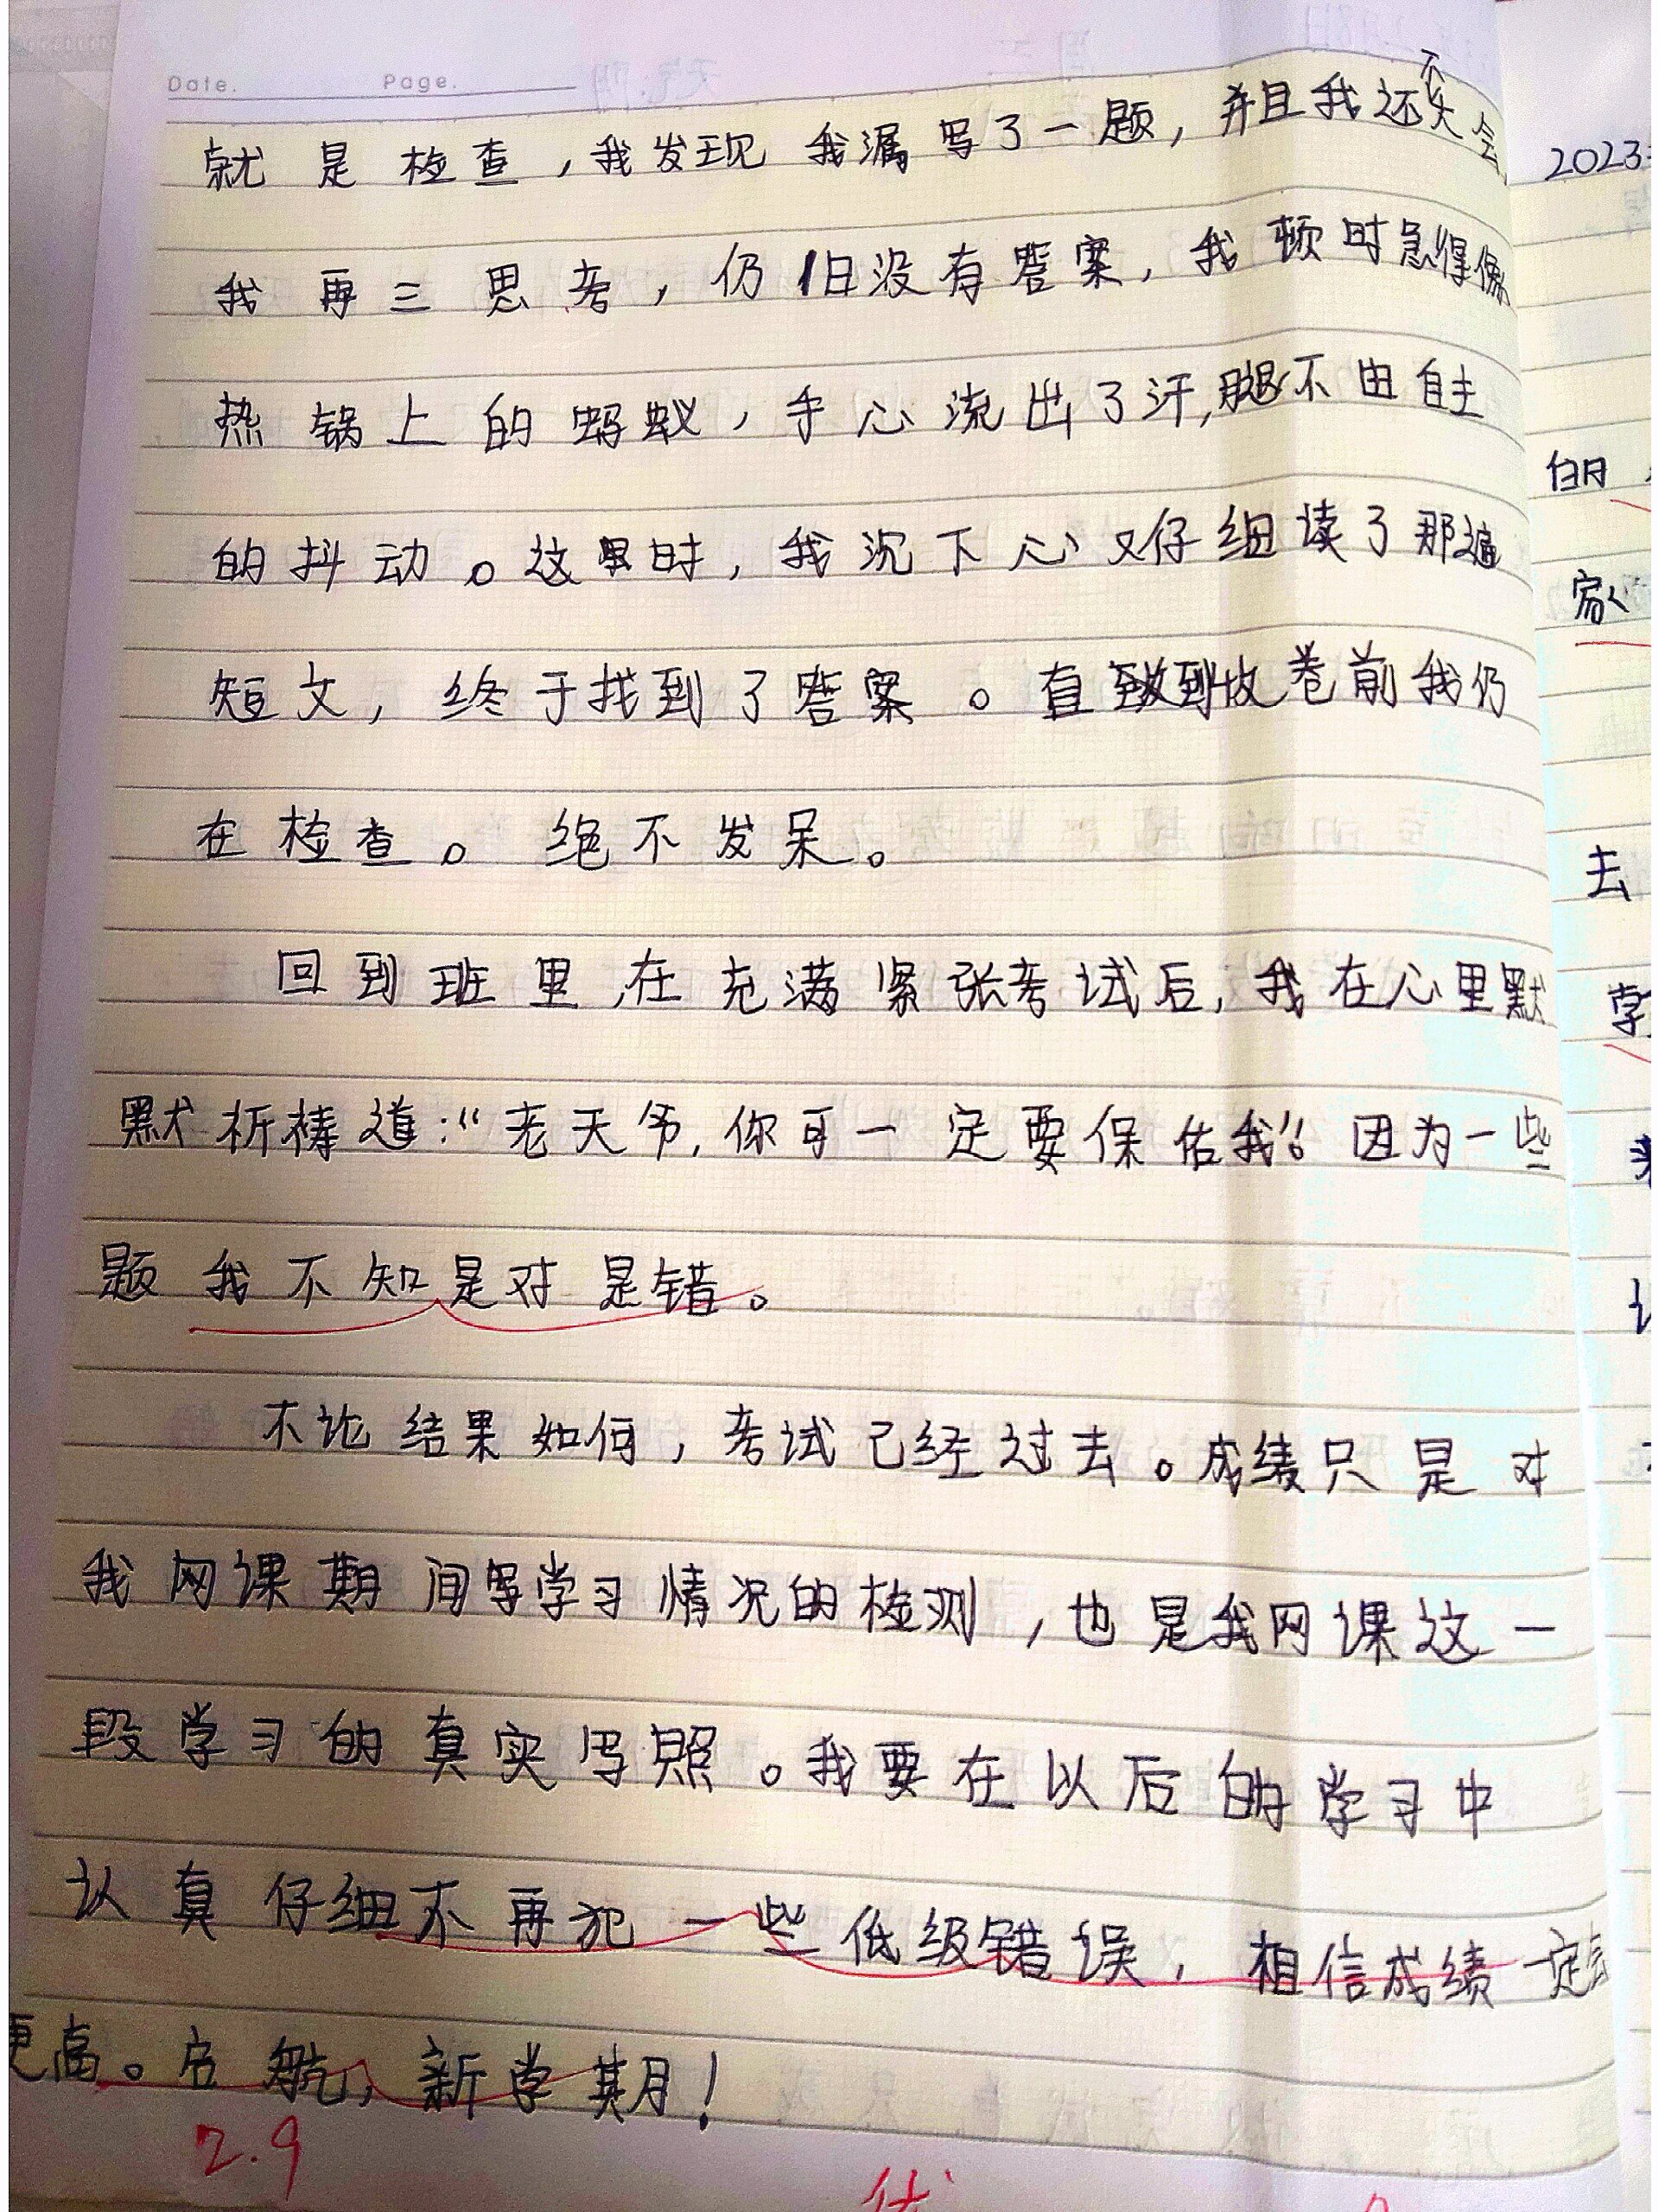 Date. Page.
就是检查，我发现我漏写了一题，并且我还不会，
我再三思考，仍旧没有答案，我顿时急得像
热锅上的蚂蚁，手心流出了汗，腿不由自主
的抖动。这时，我沉下心又仔细读了那遍
短文，终于找到了答案。直到收卷前我仍
在检查。绝不发呆。
回到班里，在充满紧张考试后，我在心里默
默祈祷道：“老天爷，你可一定要保佑我”。因为一些
题我不知是对是错。
不论结果如何，考试已经过去。成绩只是对
我网课期间学习情况的检测，也是我网课这一
段学习的真实写照。我要在以后的学习中
认真仔细不再犯一些低级错误，相信成绩一定会
更高。启航，新学期！
2.9
优
2023
去